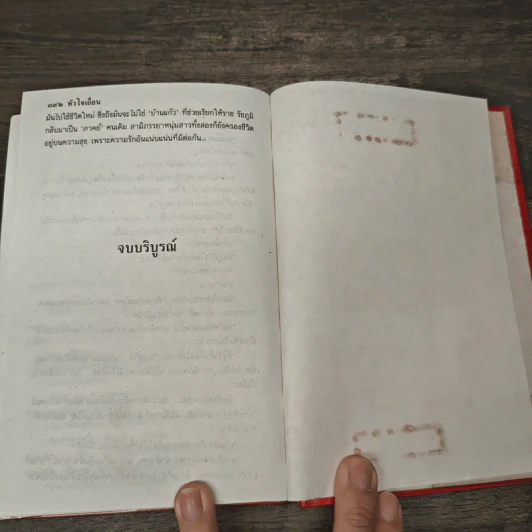 ๓๙๒ หัวใจเถื่อน
มันไปใช้ชีวิตใหม่ ซึ่งถึงมันจะไม่ใช่ 'บ้านแก้ว' ที่ช่วยเรียกให้ราช รัชภูมิ
กลับมาเป็น 'ภาคย์' คนเดิม สามีภรรยาหนุ่มสาวทั้งสองก็ยังครองชีวิต
อยู่บนความสุข เพราะความรักอันแนบแน่นที่มีต่อกัน...
จบบริบูรณ์